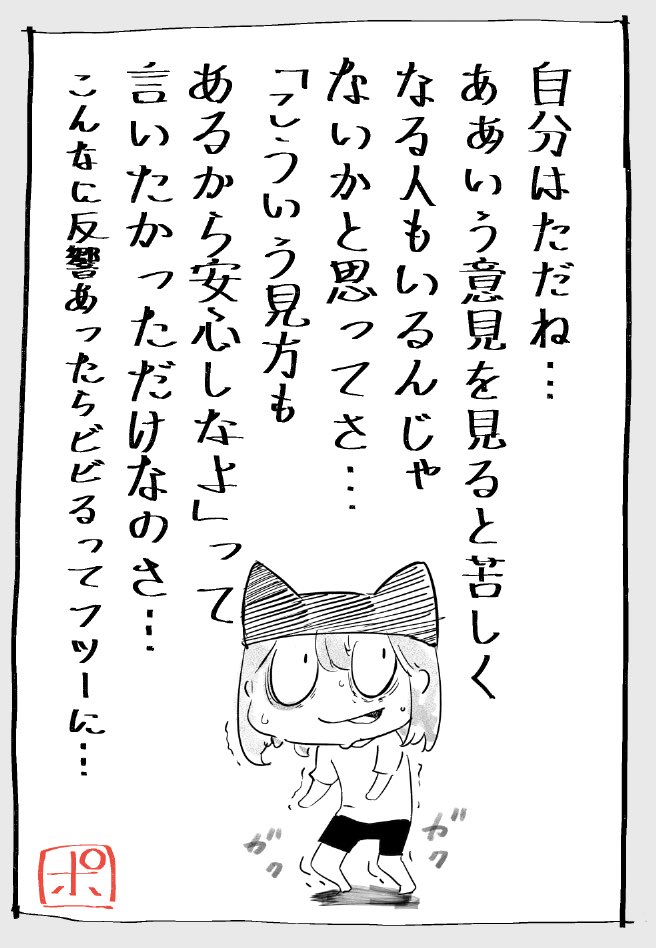 自分はただね…
ああいう意見を見ると苦しく
なる人もいるんじゃ
ないかと思ってさ…
「こういう見方も
あるから安心しなよ」って
言いたかっただけなのさ…
こんなに反響あったらビビるってフツーに…
ガク
ガク
ポ